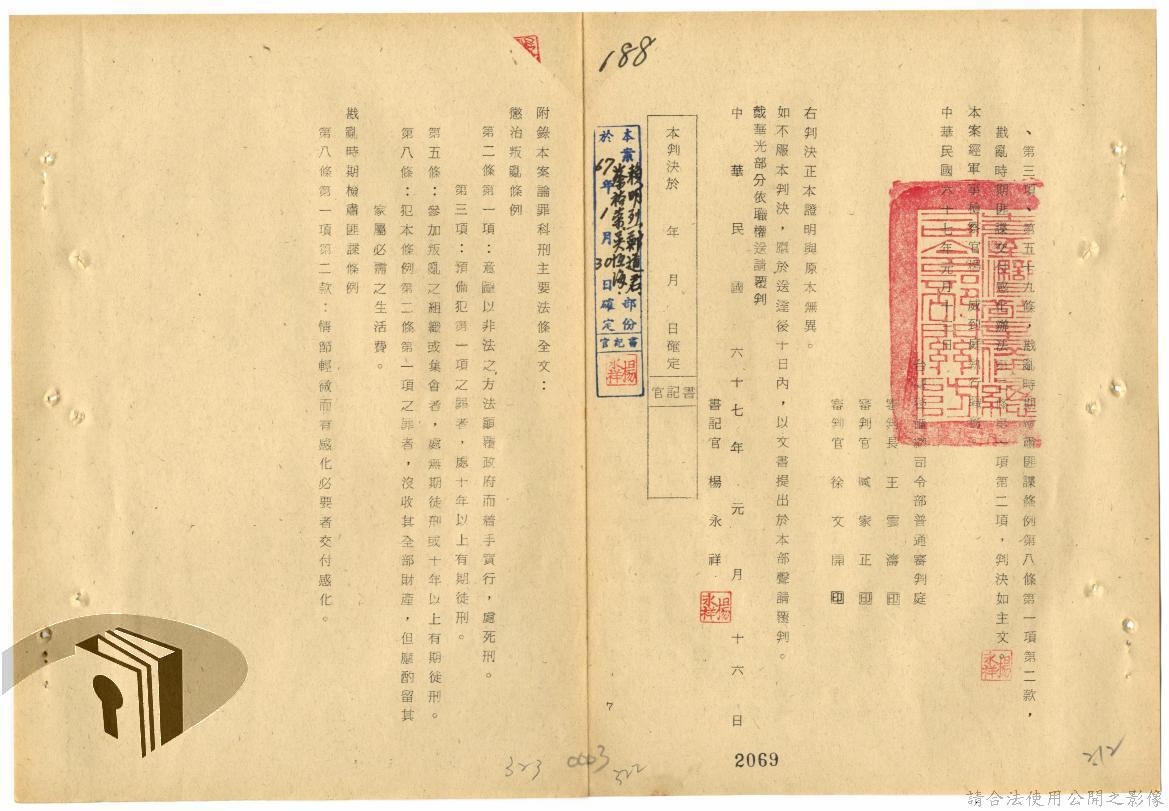 188
、第三項、第五十九條,戡亂時期檢肅匪諜條例第八條第一項第二款,
戡亂時期匪諜交付感化辦法第二條第一項第二項,判決如主文。
本案經軍事檢察官楊 威到庭執行職務
中華民國六十七年元月十二日
台灣警備總司令部普通審判庭
審判長 王雲濤 印
審判官 臧家正 印
審判官 徐文開 印
右判決正本證明與原本無異。
如不服本判決,應於送達後十日內,以文書提出於本部聲請覆判。
戴華光部分依職權送請覆判
中華民國六十七年元月十六日
書記官 楊永祥
楊永祥
本判決於 年 月 日確定
書記官
本案賴明烈鄭道君
蔡裕榮吳恒海部份
於67年1月30日確定
書記官
楊永祥
7
2069
附錄本案論罪科刑主要法條全文:
懲治叛亂條例
第二條第一項:意圖以非法之方法顛覆政府而着手實行,處死刑。
第三項:預備犯第一項之罪者,處十年以上有期徒刑。
第五條:參加叛亂之組織或集會者,處無期徒刑或十年以上有期徒刑。
第八條:犯本條例第二條第一項之罪者,沒收其全部財產,但應酌留其
家屬必需之生活費。
戡亂時期檢肅匪諜條例
第八條第一項第二款:情節輕微而有感化必要者交付感化。
323
0003
322
212
請合法使用公開之影像